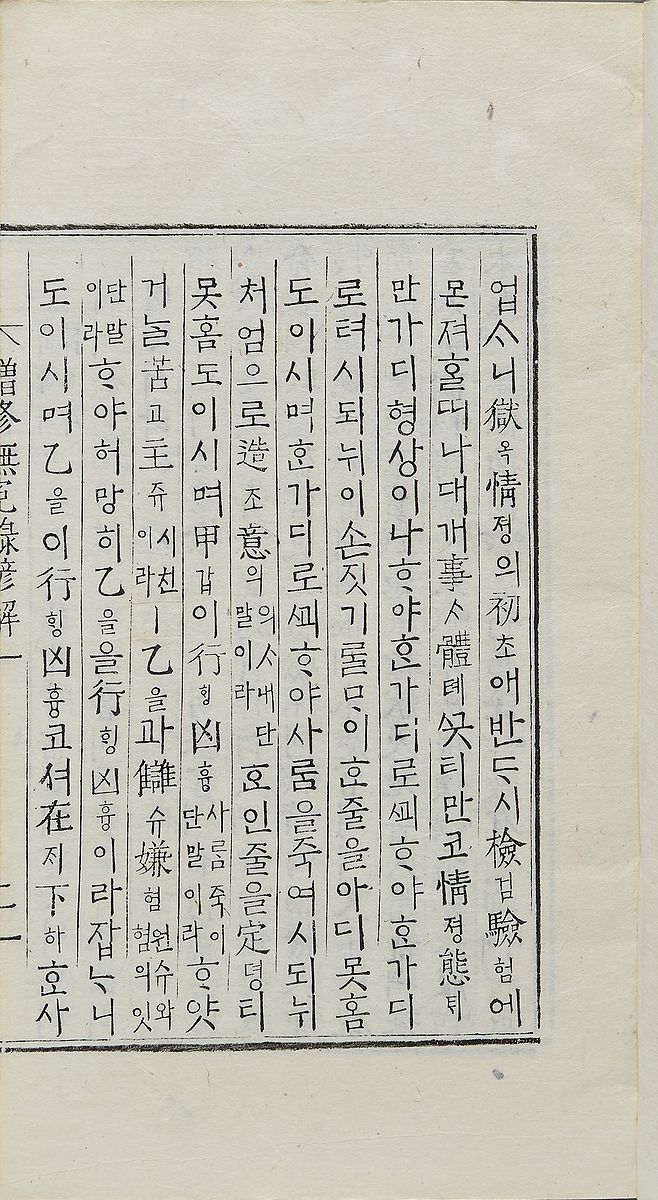 업ᄉᆞ니獄옥情졍의初초애반ᄃᆞ시檢검驗험에
몬져홀띠나대개事ᄉᆞ體톄ᄀᆞᆺ티만코情졍態ᄐᆡ
만가디형상이나ᄒᆞ야ᄒᆞᆫ가디로ᄡᅥᄒᆞ야ᄒᆞᆫ가디
로텨시되뉘이손짓기ᄅᆞᆯᄆᆡ이ᄒᆞᆫ줄을아디못홈
도이시며ᄒᆞᆫ가디로ᄡᅥᄒᆞ야사ᄅᆞᆷ을죽여시되뉘
처엄으로造조意의의ᄉᆞ내단말이라ᄒᆞᆫ인줄을定뎡티
못홈도이시며甲갑이行ᄒᆡᆼ凶흉사ᄅᆞᆷ죽이단말이라ᄒᆞ얏
거늘苦고主쥬시친이라ㅣ乙을과讎슈嫌혐원슈와혐의잇
단말이라ᄒᆞ야허망히乙을을行ᄒᆡᆼ凶흉이라잡ᄂᆞ니
도이시며乙을이行ᄒᆡᆼ凶흉코셔在ᄌᆡ下하ᄒᆞᆫ사
增修無冤錄諺解一